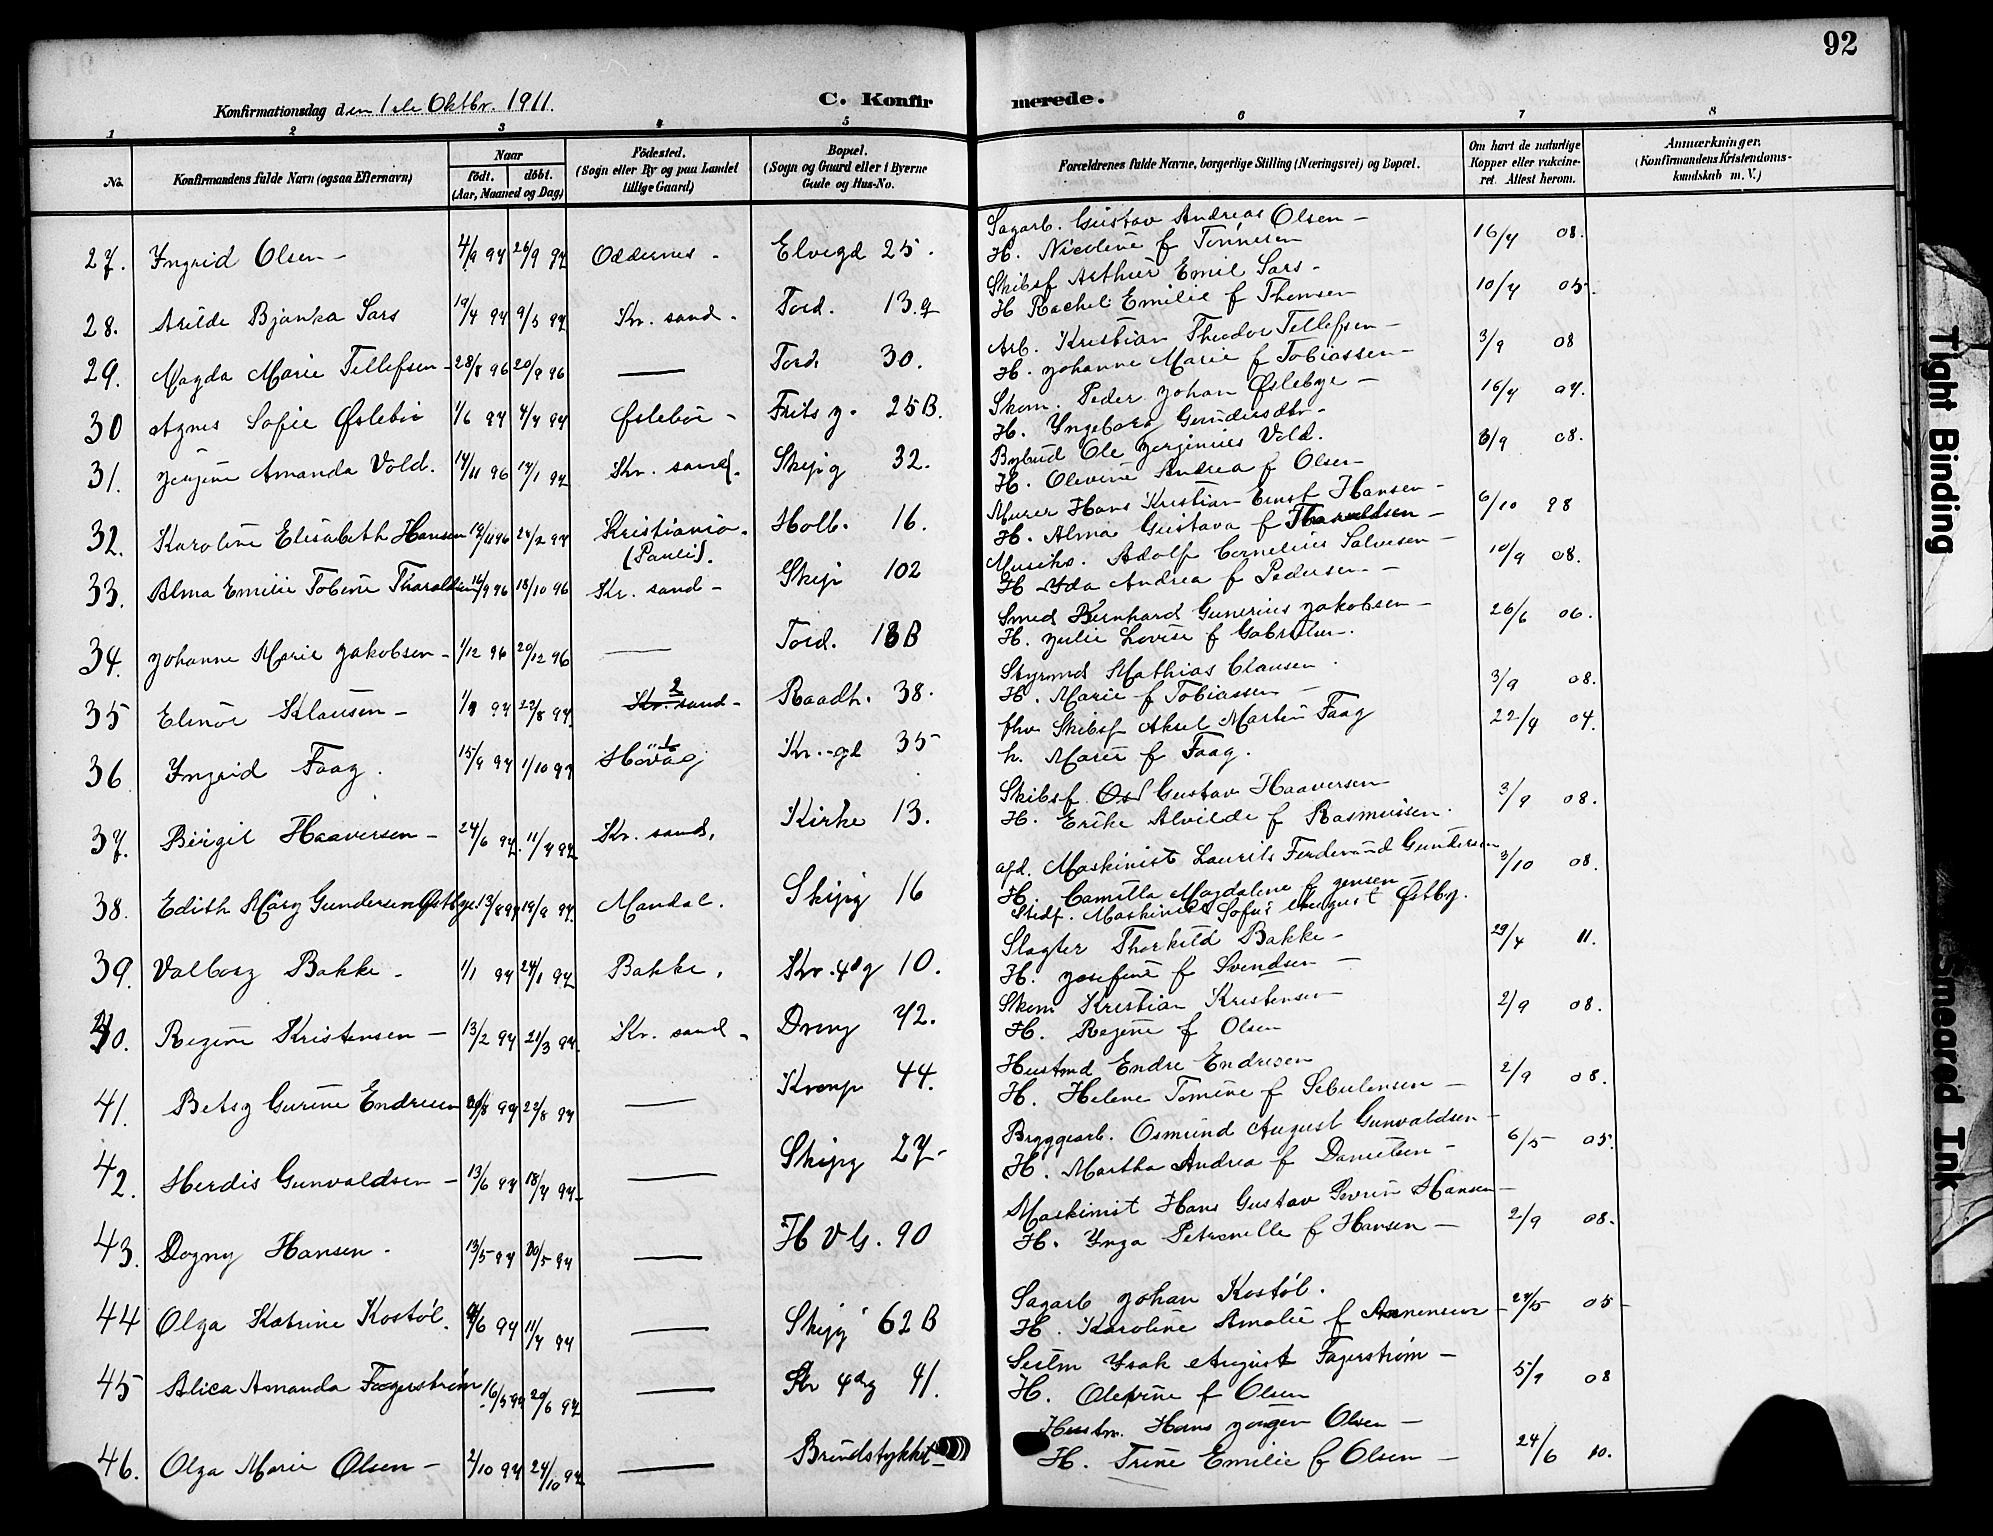 92
Konfirmationsdag den 1ste Oktbr. 1911.
C. Konfirmerede.
1 2 3 4 5 6 7 8
No.
Konfirmandens fulde Navn (ogsaa Efternavn)
Naar
født. døbt.
(Aar, Maaned og Dag)
Födested.
(Sogn eller By og paa Landet
tillige Gaard)
Bopæl.
(Sogn og Gaard eller i Byerne
Gade og Hus-No.
Forældrenes fulde Navne, borgerlige Stilling (Næringsvei) og Bopæl.
Om havt de naturlige
Kopper eller vakcine-
ret. Attest herom.
Anmærkninger.
(Konfirmandens Kristendoms-
kundskab m. V.)
27. Ingrid Olsen - 4/9 97 26/9 97 Oddernes - Elvegd 25. Sagarb. Gustav Andreas Olsen - 16/7 08.
H. Nicoline f Tönnesen
28. Arilda Bjanka Sars 19/4 97 9/5 97 Kr. sand - Tord. 13 Skibsf Arthur Emil Sars - 10/7 05.
H Rachel Emilie f Thomsen
29. Magda Marie Tellefsen - 28/8 96 20/9 96 — Tord. 30. Arb. Kristian Theodor Tellefsen - 3/9 08
H. Johanne Marie f Tobiassen -
30 Agnes Sofie Øslebö 1/6 97 4/7 97 Øslebö - Frits 25B. Skom. Peder Johan Øslebye - 16/7 07.
H. Ingeborg
31. Amanda Vold. 14/11 96 17/1 97 Kr. sand. Skipg 32. Bybud Ole Jerginius Vold. 3/9 08.
H. Olevine Andrea f Olsen -
32. Karoline Elisabeth Hansen 24/2 97 Kristiania. Holb. 16. Murer Hans Kristian Ernst Hansen - 6/10 98
(Pauli). H. Alma Gustava f Tharaldsen -
33. Alma Emilie Tobine Tharaldsen 16/9 96 18/10 96 Kr. sand - Skip 102 Musiks. Adolf Cornelius Salvesen - 10/9 08.
H Ida Andrea f Pedersen -
34. Johanne Marie Jakobsen - 1/12 96 20/12 96 — Tord. 18B Smed Bernhard Gunerius Jakobsen - 26/6 06.
H. Julie Lovise f Gabrielsen -
35 Elinör Klausen - 97 22/8 97. Kr. sand - Raadh. 38. Styrmd Mathias Clausen. 3/9 08.
H. Marie f Tobiassen -
36 Ingrid Faag. 15/9 97 1/10 97 Hövåg Kr.-gd 35 fhv Skibsf Aksel Martin Faag 22/9 04.
h. Marie f Faag.
37. Birgit Haaversen - 24/6 97. 11/7 97 Kr. sand. Kirke 13. Skibsf. Gustav Haaversen 3/9 08.
H. Erike Alvilde f Rasmussen.
38. Edith Mary Gundersen Østbye 13/8 97 19/9 97. Mandal. Skipg 16 afd. Maskinist Laurits Ferdinand Gundersen 3/10 08.
H. Camilla Magdalene f Jensen -
Stedf. Maskinist Sofus August Østby.
39. Valborg Bakke - 1/1 97 24/1 97 Bakke. Kr. 4dg 10. Slagter Thorkild Bakke - 29/4 11.
H. Josefine f Svendsen -
40. Regine Kristensen - 13/2 97 21/3 97. Kr. sand - Drng 72. Skom Kristian Kristensen 2/9 08.
H. Regine f Olsen
41. Betsy Gurine Endresen 22/8 97 — Kronp 44. Hustmd Endre Endresen 2/9 08.
H. Helene Tomine f Sebulonsen -
42. Herdis Gunvaldsen - 13/6 97 18/7 97 — Skipg 27 - Bryggearb. Osmund August Gunvaldsen - 6/5 05.
H. Martha Andrea f Danielsen -
43. Dagny Hansen. 13/5 97 30/5 97 — H V G. 90 Maskinist Hans Gustav Hansen - 2/9 08.
H. Inga Petronelle f Hansen -
44 Olga Katrine Kostöl. 97 11/7 97 — Skipg 62 B Sagarb Johan Kostöl. 29/5 05 -
H. Karoline Amalie f
45 Alica Amanda Fagerström 16/5 97 20/6 97 — Kr 4dg 41. Seilm Isak August Fagerström - 5/9 08
H. Olevine f Olsen
46. Olga Marie Olsen - 2/10 97 24/10 97 — Brindstykket Hustm. Hans Jörgen Olsen - 24/6 10.
H. Trine Emilie f Olsen -
Tight Binding
Smeared Ink